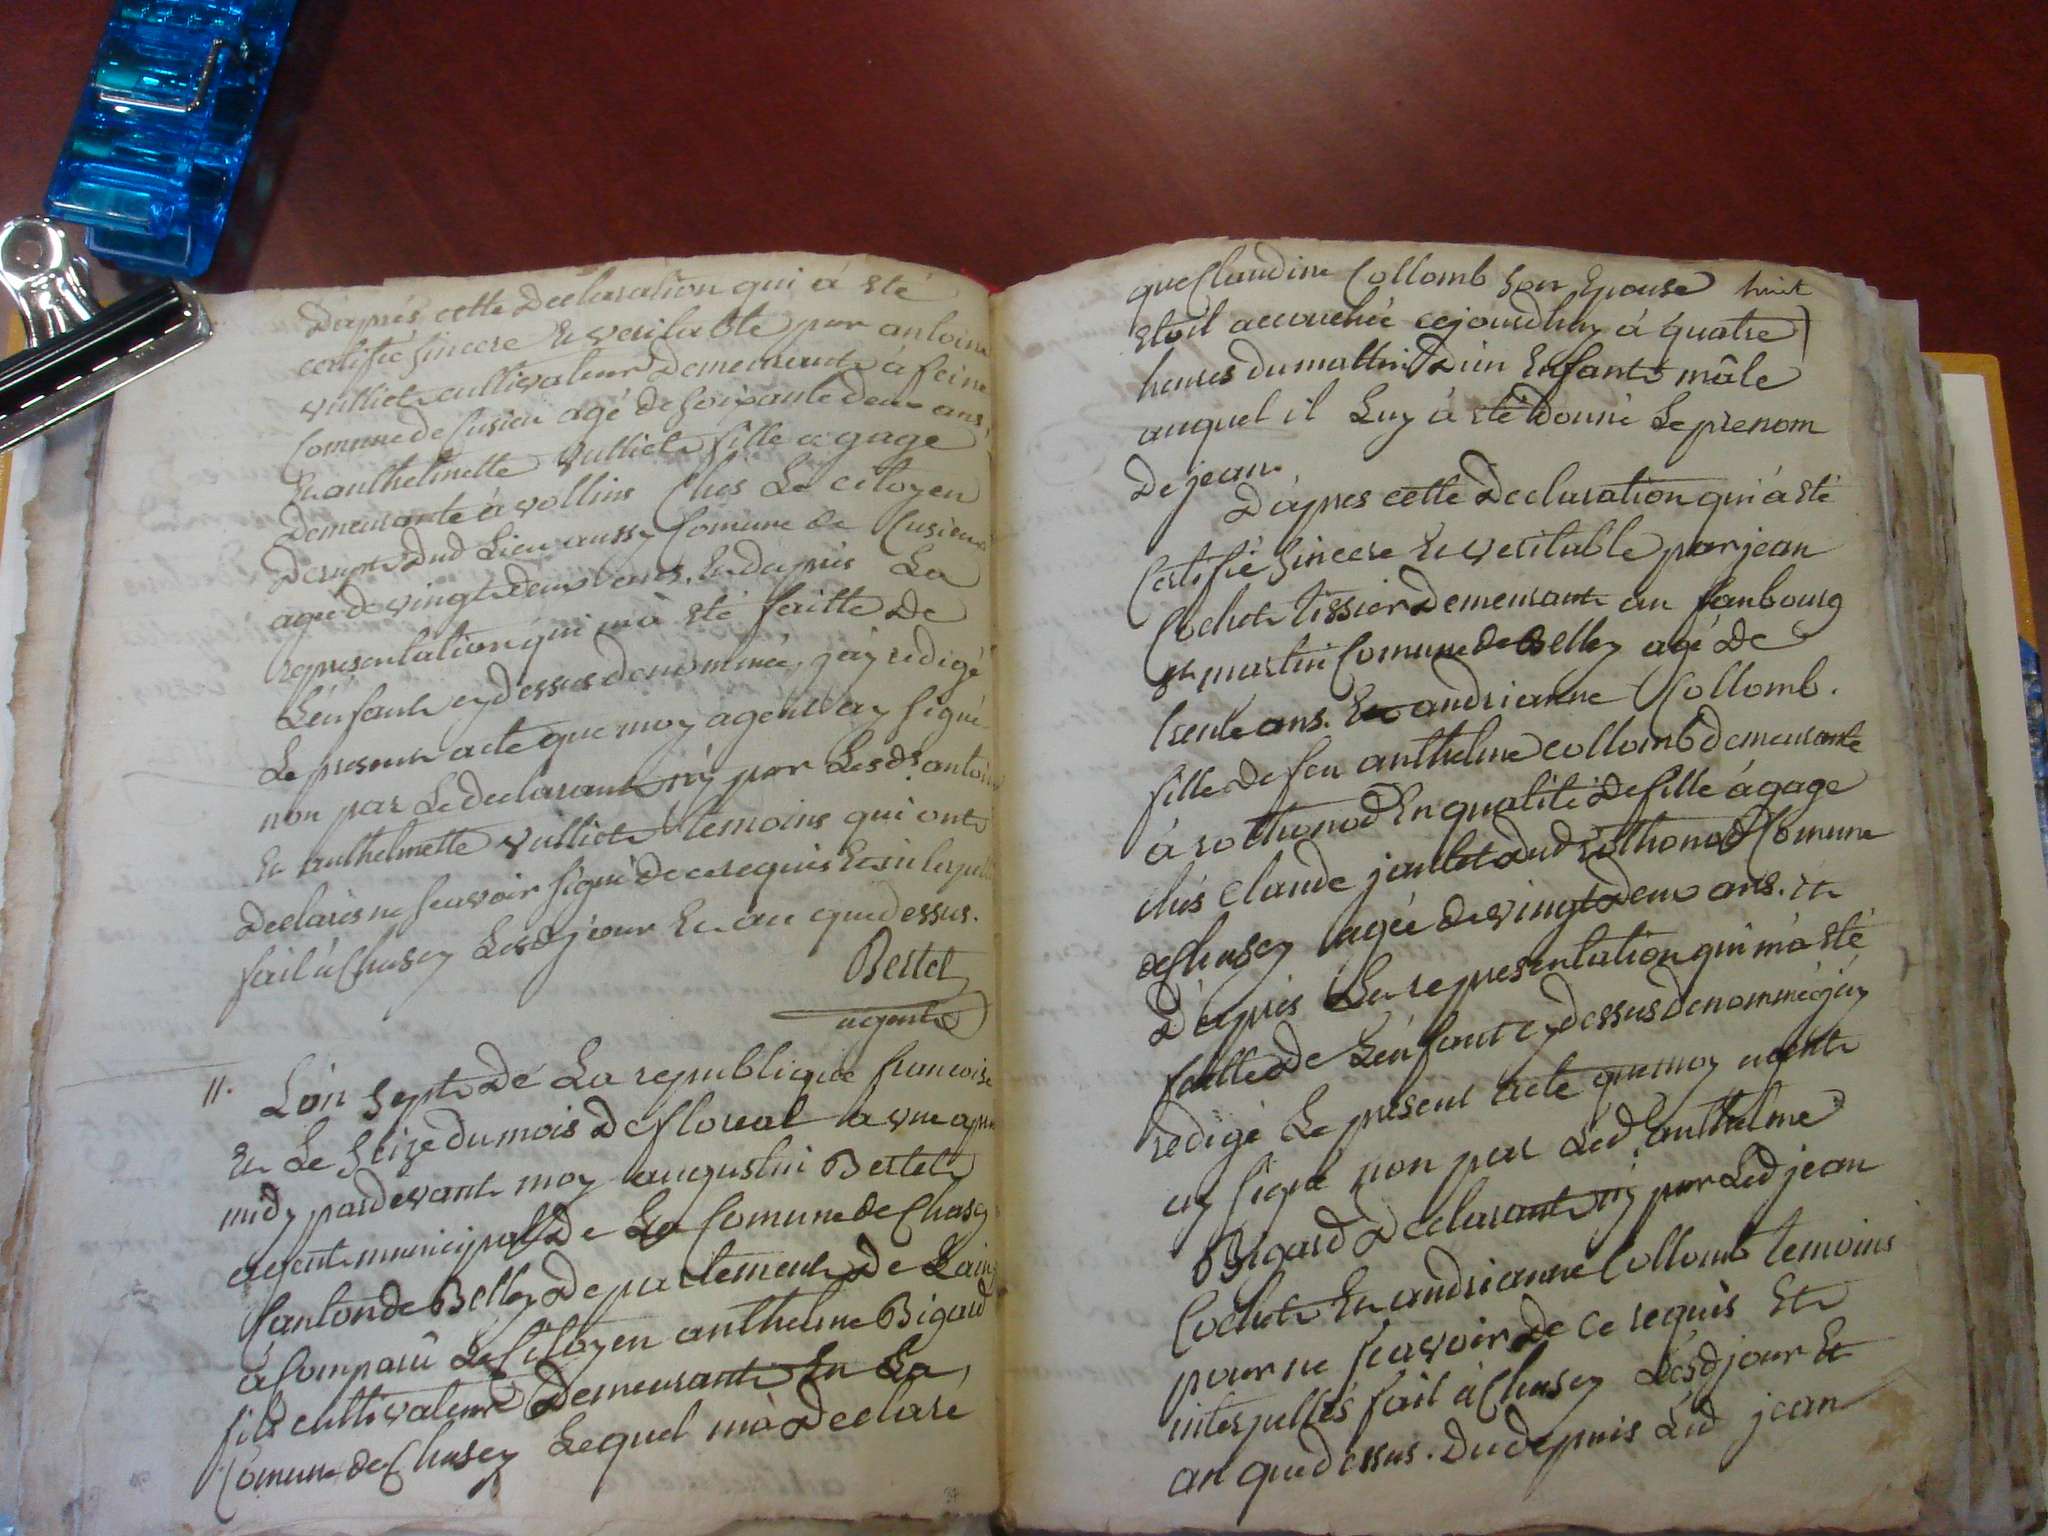 D'après cette declaration qui à eté
certifié sincere Et veritable par antoine
vulliet cultivateur demeurant à
Comune de Cusieu agé de soixante deux ans
Et anthelmette vulliet fille a gage
demeurante à vollins Chés Le citoyen
dud Lieu aussy Comune de Cusieu
agée de vingt deux ans. Et dapris La
representation qui m'à eté faitte De
L'enfant cydessus denommée, j'ay redigé
Le present acte que moy agent ay signé
non par Le declarant ny par Lesds antoine
Et anthelmette vulliet temoins qui ont
declarés ne scavoir signé de ce requis Et interpellés
fait à Chasey Lesd jour Et an que dessus.
Bertet
agent
11. L'an sept De La republique francoise
Et Le seize du mois De floreal a une apres
midy pardevant moy augustin Bertet
agent municipal De La Comune de Chasey
Canton de Belley Departement De Lain
à Comparû Le Citoyen anthelme Bigard
fils cultivateur Demeurant En La
Comune de Chasey Lequel m'à Declaré
que Claudine Collomb son Epouse huit
etoit accouchée cejourdhuy à quatre
heures du mattin D'un Enfant mâle
auquel il Luy à eté Donné Le prenom
De jean.
D'apres cette Declaration qui à eté
Certifié sincere Et veritable par jean
Cochet tissier Demeurant au fanbourg
st martin Comune de Belley agé De
trente ans. Et andrianne Collomb.
fille de feu anthelme collomb demeurante
à rothonod En qualité De fille à gage
chés Claude dud rothonod Comune
de Chasey agée de vingt deux ans. Et
D'après La representation qui m'à eté
faitte De L'enfant cydessus Denommé j'ay
redigé Le present acte que moy agent
ay signé non par Led anthelme
Bigard Declarant ny par Led jean
Cochet Et andrianne Collomb temoins
pour ne scavoir De ce requis Et
interpellés fait à Chasey Lesd jour Et
an que dessus. Du depuis Led jean